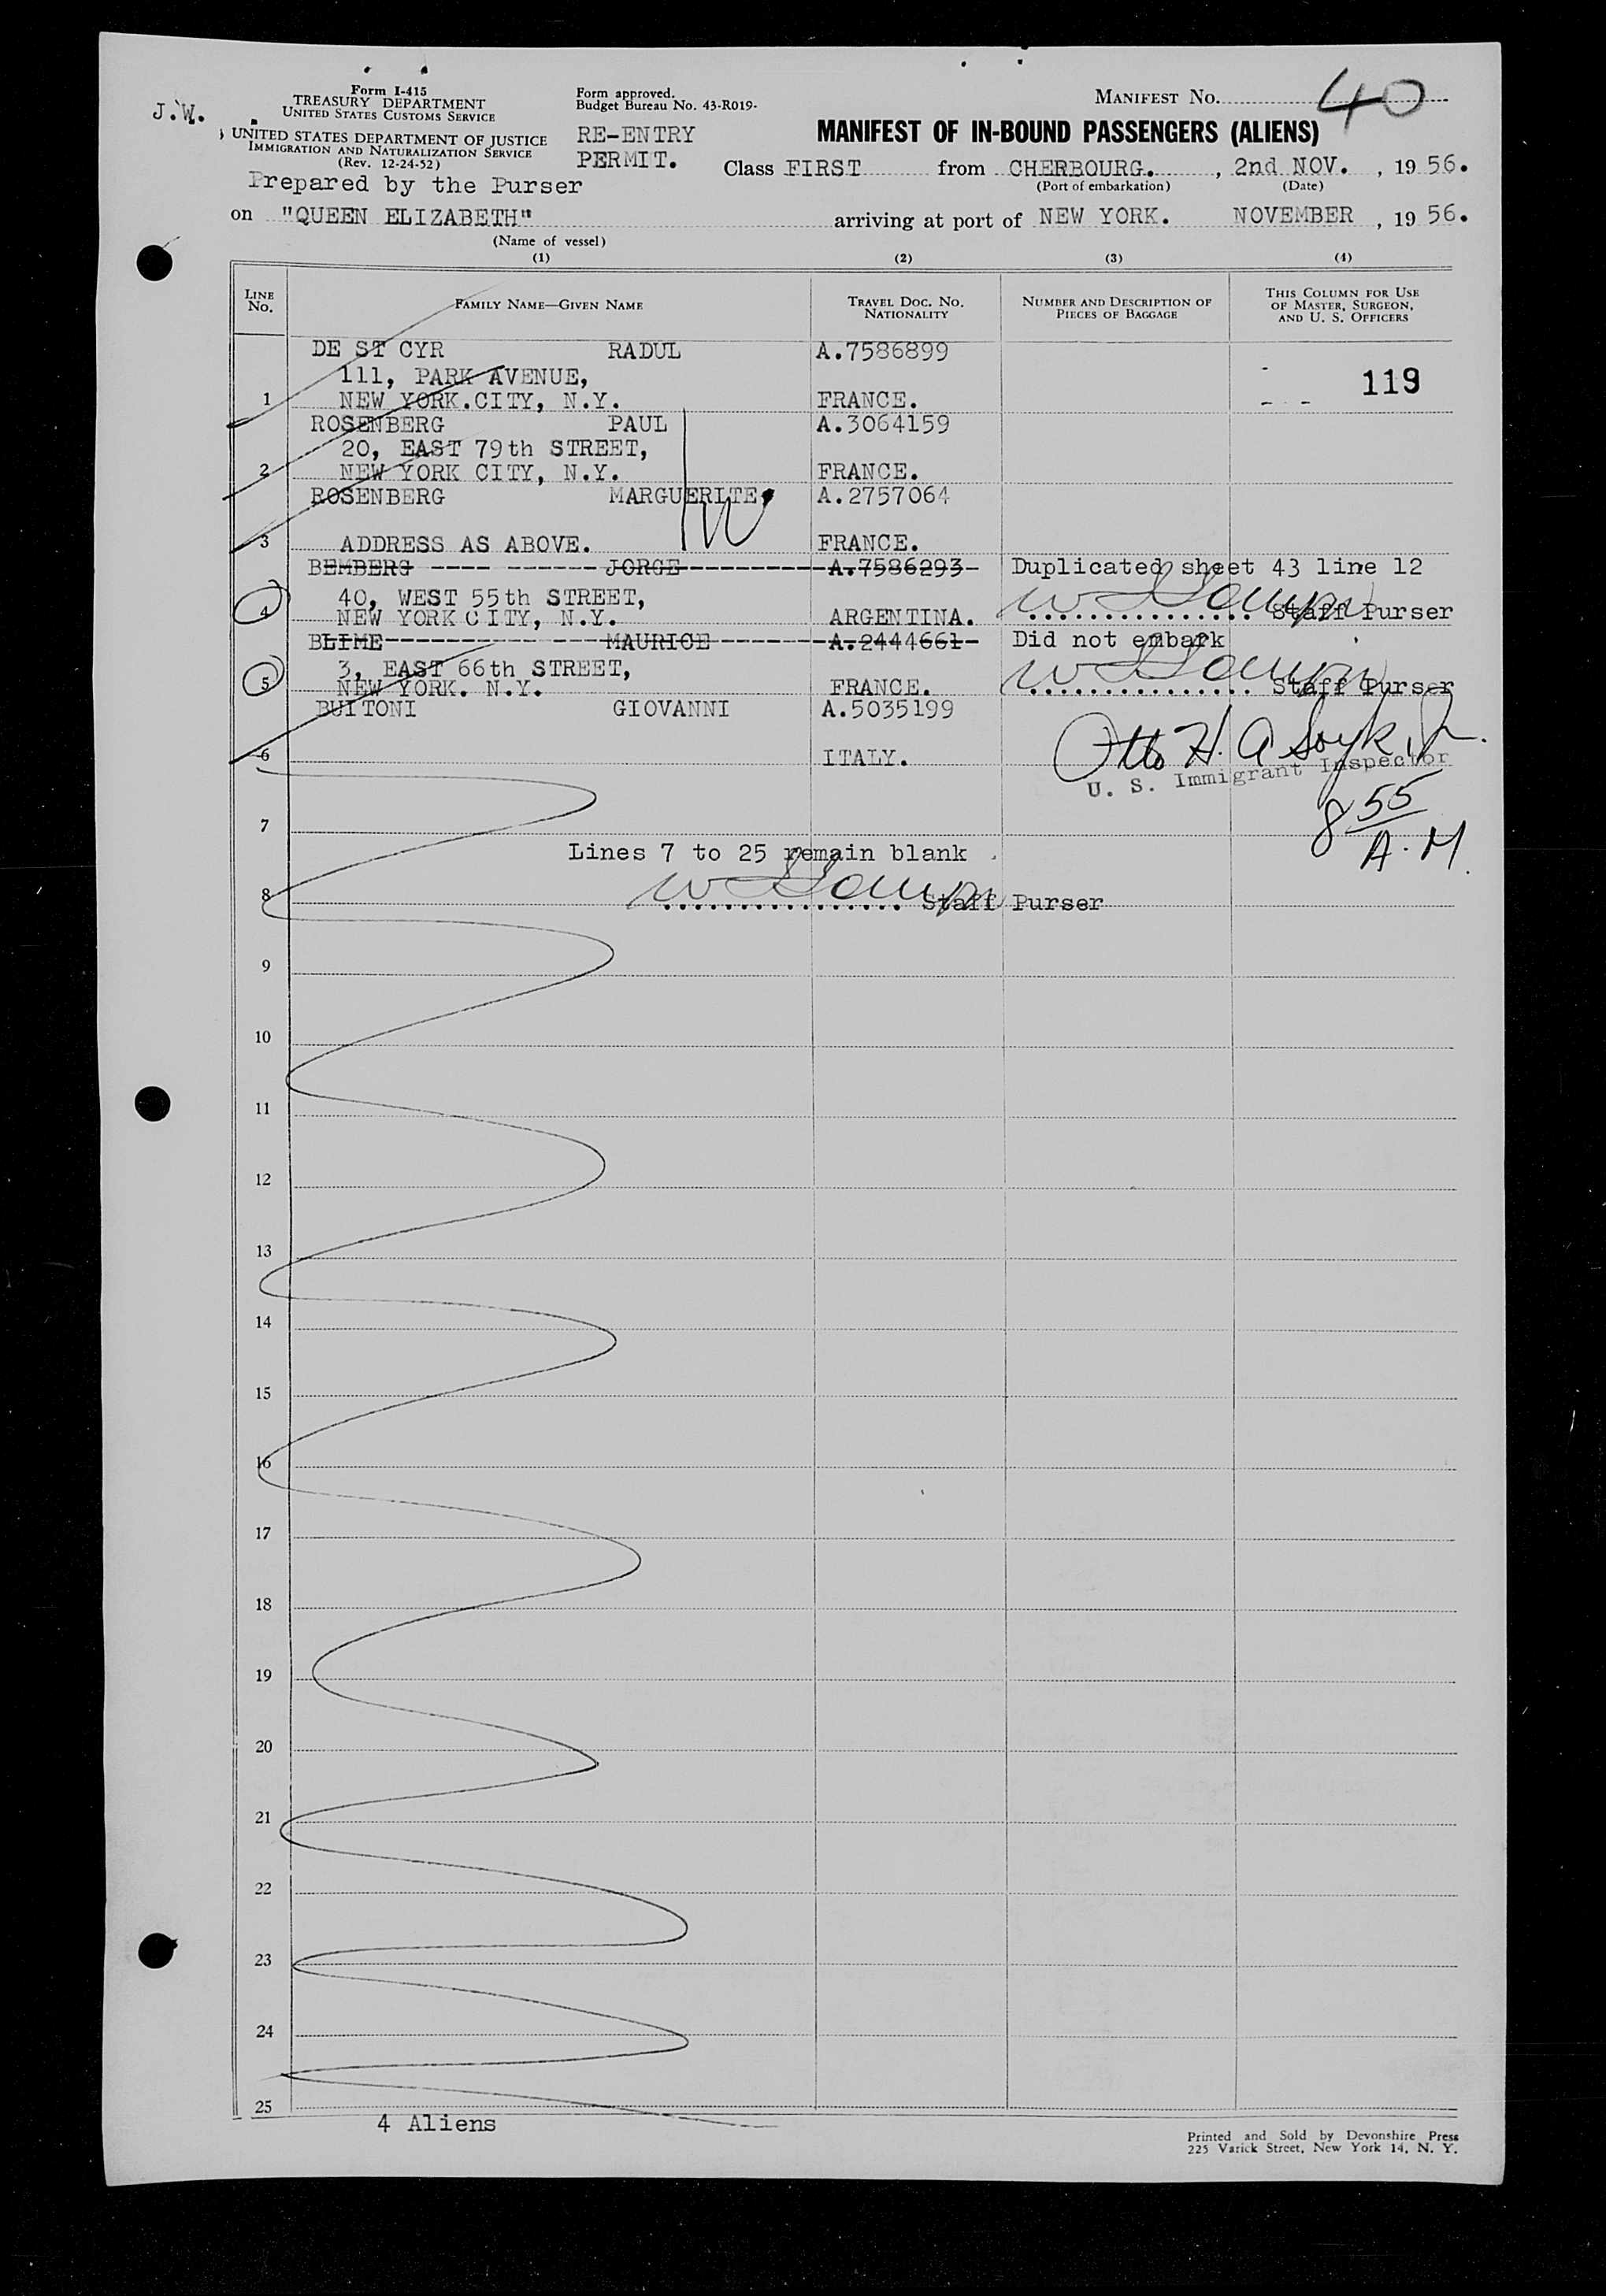 J.W.
Form I-415
TREASURY DEPARTMENT
UNITED STATES CUSTOMS SERVICE
UNITED STATES DEPARTMENT OF JUSTICE
IMMIGRATION AND NATURALIZATION SERVICE
(Rev. 12-24-52)
Form approved.
Budget Bureau No. 43-R019-
RE-ENTRY
PERMIT.
MANIFEST No. 40
MANIFEST OF IN-BOUND PASSENGERS (ALIENS)
Class FIRST from CHERBOURG. , 2nd NOV. , 19 56.
(Port of embarkation) (Date)
Prepared by the Purser
on "QUEEN ELIZABETH" arriving at port of NEW YORK. NOVEMBER , 19 56.
(Name of vessel)
(1) (2) (3) (4)
LINE No. FAMILY NAME—GIVEN NAME TRAVEL DOC. NO. NATIONALITY NUMBER AND DESCRIPTION OF PIECES OF BAGGAGE THIS COLUMN FOR USE OF MASTER, SURGEON, AND U. S. OFFICERS
DE ST CYR RADUL A.7586899
111, PARK AVENUE, 119
1 NEW YORK.CITY, N.Y. FRANCE.
ROSENBERG PAUL A.3064159
20, EAST 79th STREET,
2 NEW YORK CITY, N.Y. FRANCE.
ROSENBERG MARGUERITE. A.2757064
3 ADDRESS AS ABOVE. FRANCE.
BEMBERG ---- ------ JORGE --------- A.7586293- Duplicated sheet 43 line 12
40, WEST 55th STREET,
4 NEW YORK CITY, N.Y. ARGENTINA. ............... Staff Purser
BLIME --------------- MAURICE -------- A.2444661- Did not embark
3, EAST 66th STREET,
5 NEW YORK. N.Y. FRANCE. ............... Staff Purser
BUITONI GIOVANNI A.5035199
Otto H. A
6 ITALY.
U. S. Immigrant Inspector
8 55
A.M.
7
Lines 7 to 25 remain blank
8 ................ Staff Purser
9
10
11
12
13
14
15
16
17
18
19
20
21
22
23
24
25
4 Aliens
Printed and Sold by Devonshire Press
225 Varick Street, New York 14, N. Y.